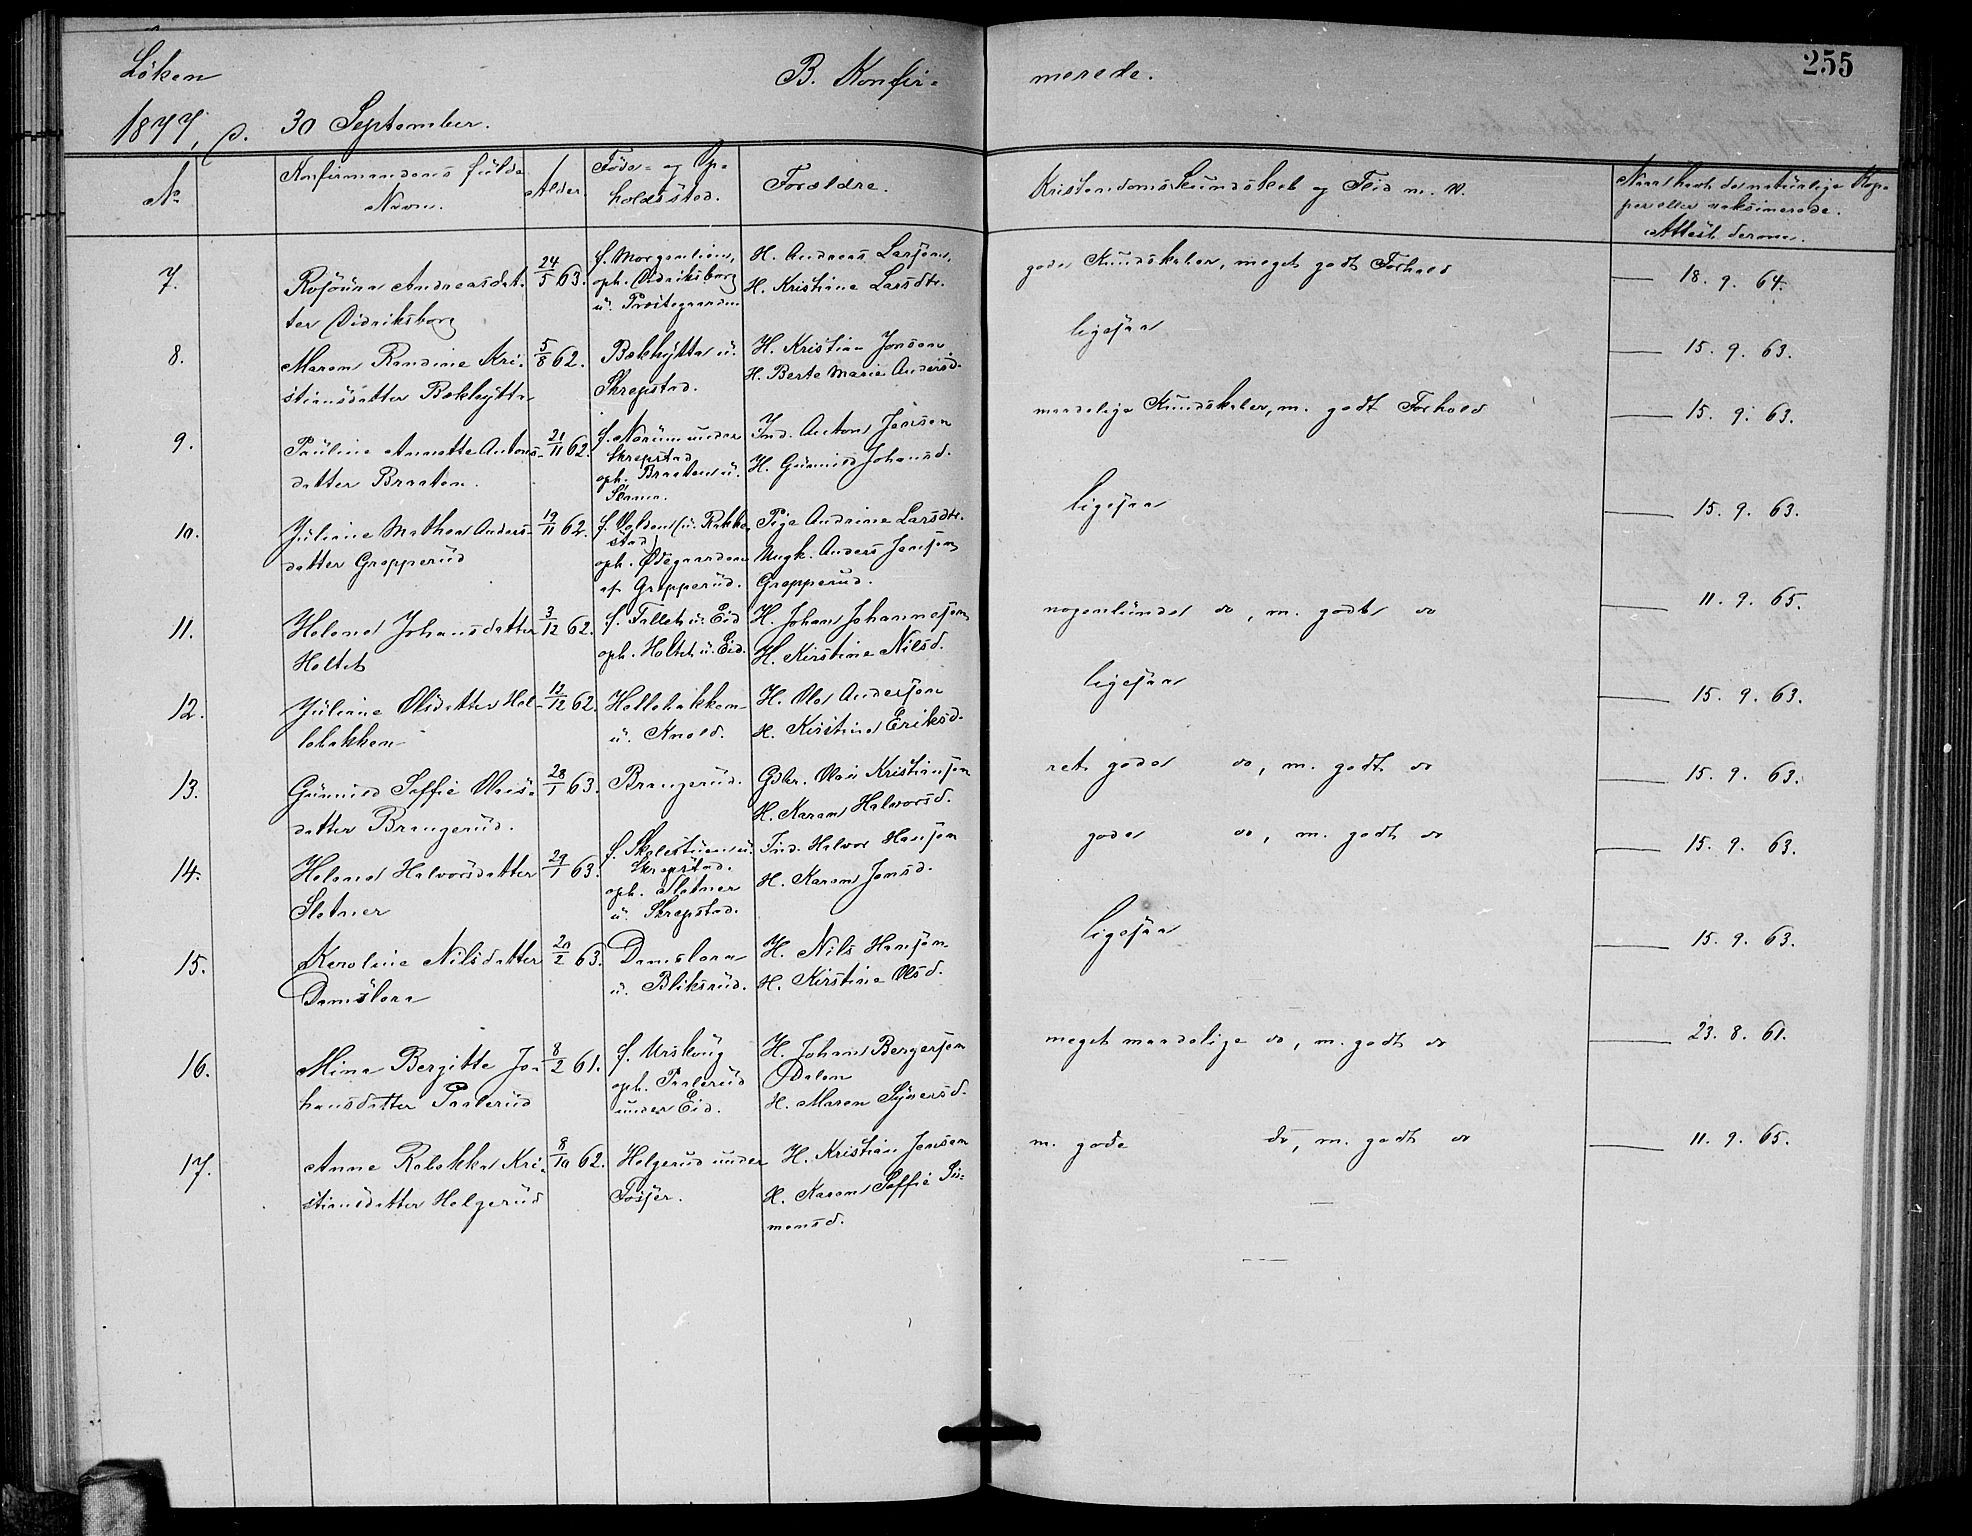 255
Löken B. Konfir- merede.
1877, d. 30 September.
No
Konfirmandens fulde
Navn.
Alder.
Føde- og Op-
holdsstad.
Forældre.
Kristendomskundskab og Flid m. v.
Naar havt de naturlige Kop-
per eller vaksinerede.
Attest derom.
7.
Andreasdat-
ter Didriksborg
24/5 63.
f. Morgenlien,
oph. Didriksborg
u. Prestegaarden
H. Andreas Larsen,
H. Kristiane Larsdtr.
gode Kundskaber, meget godt Forhold
18. 9. 64.
8.
Maren Randine Kri-
stiansdatter Bækhytta
5/8 62.
Bækhytta u.
Skrepstad.
H. Kristian Jonsen
H. Berte Marie Andersd.
ligesaa
15. 9. 63.
9.
Pauline Annette Antons-
datter Braaten.
21/11 62.
f. Narum under
Skrepstad
oph. Braaten u.
H. Gunnild Johansd.
Ind. Anton Jansen
maadelige Kundskaber, m. godt Forhold
15. 9. 63.
10.
Juliane Mathea Anders-
datter Gropperud
19/11 62.
f. Volden (u. Rakke-
stad)
oph. Ødegaarden
af Gropperud.
Pige Andrine Larsdtr.
Ungk. Anders Jansen
Gropperud.
ligesaa
15. 9. 63.
11.
Helene Johansdatter
Holtet
3/12 62.
f. Tallet u. Eid
oph. Holtet u. Eid.
H. Johan Johannesen
H. Kirstine Nilsd.
nogenlunde do, m. godt do
11. 9. 65.
12.
Juliane Olsdatter Hel-
lebakken
12/12 62.
Hellebakken
u. Knold.
H. Ole Andersen
H. Kirstine Eriksd.
ligesaa
15. 9. 63.
13.
Gunnild Soffie Olais-
datter Brangerud.
28/1 63.
Brangerud.
Gdbr. Olai Kristiansen
H. Karen Halvorsd.
ret gode do, m. godt do
15. 9. 63.
14.
Helene Halvorsdatter
Slotner
29/1 63.
f. Skolestuen u.
Skrepstad.
oph. Slotner
u. Skrepstad.
Ind. Halvor Hansen
H. Karen Jensd.
gode do, m. godt do
15. 9. 63.
15.
Karoline Nilsdatter
Damslora
20/2 63.
Damslora
u. Bliksrud.
H. Nils Hansen
H. Kirstine Olsd.
ligesaa
15. 9. 63.
16.
Mina Bergitte Jo-
hansdatter Paalerud
8/2 61.
f. Urskoug
oph. Paalerud
under Eid.
H. Johan Bergersen
Dalen
H. Maren Syversd.
meget maadelige do, m. godt do
23. 8. 61.
17.
Anne Rebekka Kri-
stiansdatter Helgerud
8/10 62.
Helgerud under
Fosser.
H. Kristian Jensen
H. Karen Soffie Si-
monsd.
m. gode do, m. godt do
11. 9. 65.